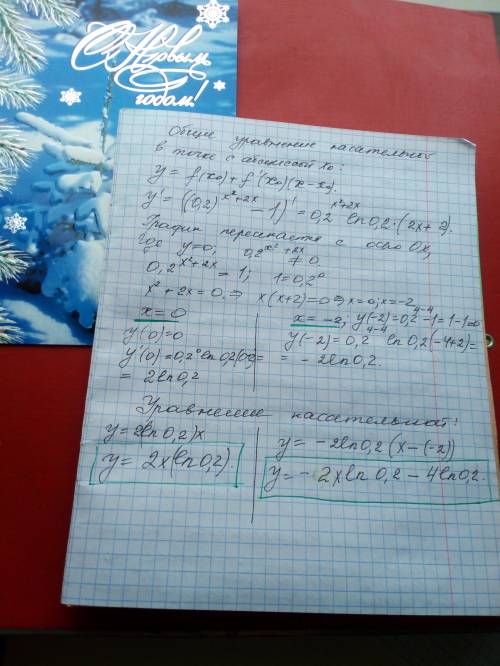 С Новым
годом!
Общее уравнение касательной
в точке с абсциссой x₀:
y = f(x₀) + f'(x₀)(x - x₀).
y' = ((0,2)^(x²+2x) - 1)' = 0,2^(x²+2x) ln0,2·(2x+2).
График пересекается с осью Ox,
где y=0; 0,2^(x²+2x) ≠ 0
0,2^(x²+2x) = 1; 1=0,2⁰
x²+2x=0 ⇒ x(x+2)=0 ⇒ x=0; x=-2
x=0
y(0)=0
y'(0)=0,2⁰ ln0,2(0+2)=
= 2ln0,2
x=-2; y(-2)=0,2^(4-4)-1=1-1=0
y(-2)=0,2^(4-4) ln0,2(-4+2)=
= -2ln0,2.
Уравнение касательной:
y=2(ln0,2)x
y= 2x(ln0,2).
y= -2ln0,2(x-(-2))
y= -2xln0,2-4ln0,2.